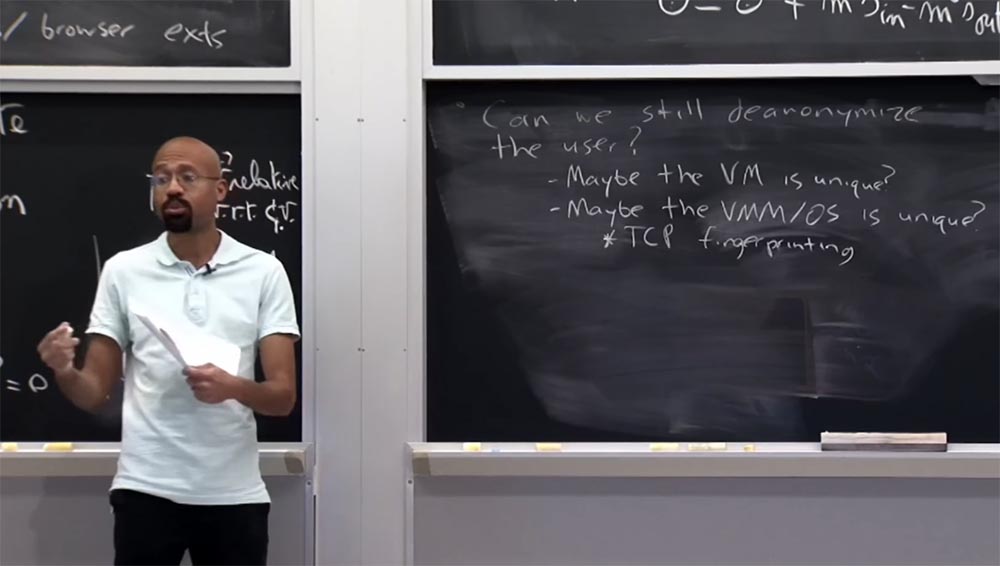 / browser exts
? relative
w.r.t. &V.
= 0
+ m's in - m's out
Can we still deanonymize
the user?
- Maybe the VM is unique?
- Maybe the VMM/OS is unique?
* TCP fingerprinting